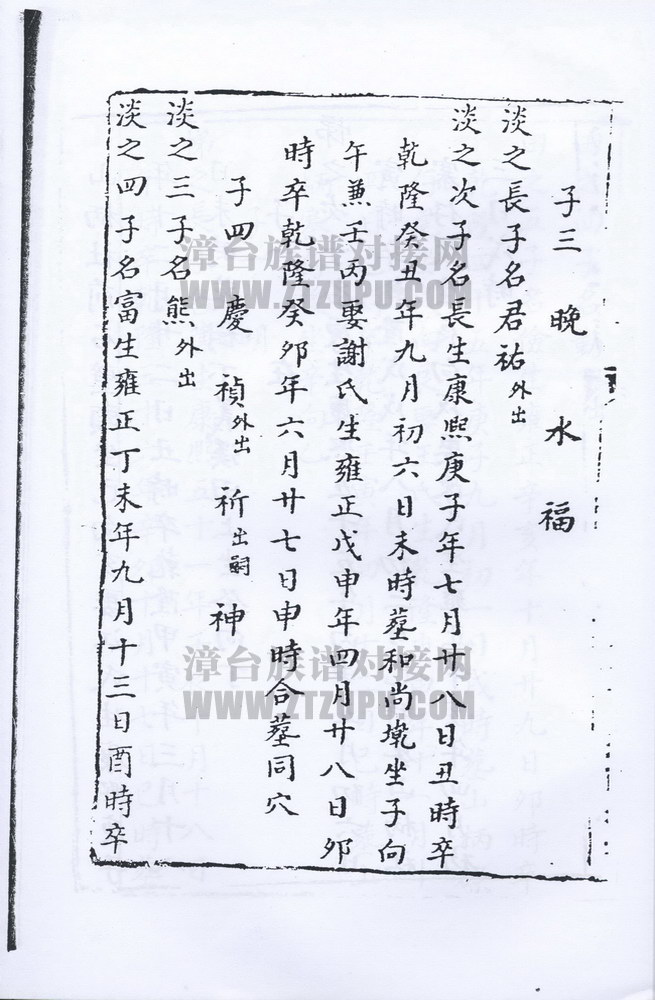 子三 晩 水 福
淡之長子名君祐外出
淡之次子名長生康熙庚子年七月廿八日丑時卒
乾隆癸丑年九月初六日未時塟和尚墘坐子向
午兼壬丙娶謝氏生雍正戊申年四月廿八日夘
時卒乾隆癸夘年六月廿七日申時合塟同穴
子四 慶 禎外出 祈出嗣 神
淡之三子名熊外出
淡之四子名富生雍正丁未年九月十三日酉時卒
漳台族谱对接网
WWW.ZTZUPU.COM
漳台族谱对接网
WWW.ZTZUPU.COM